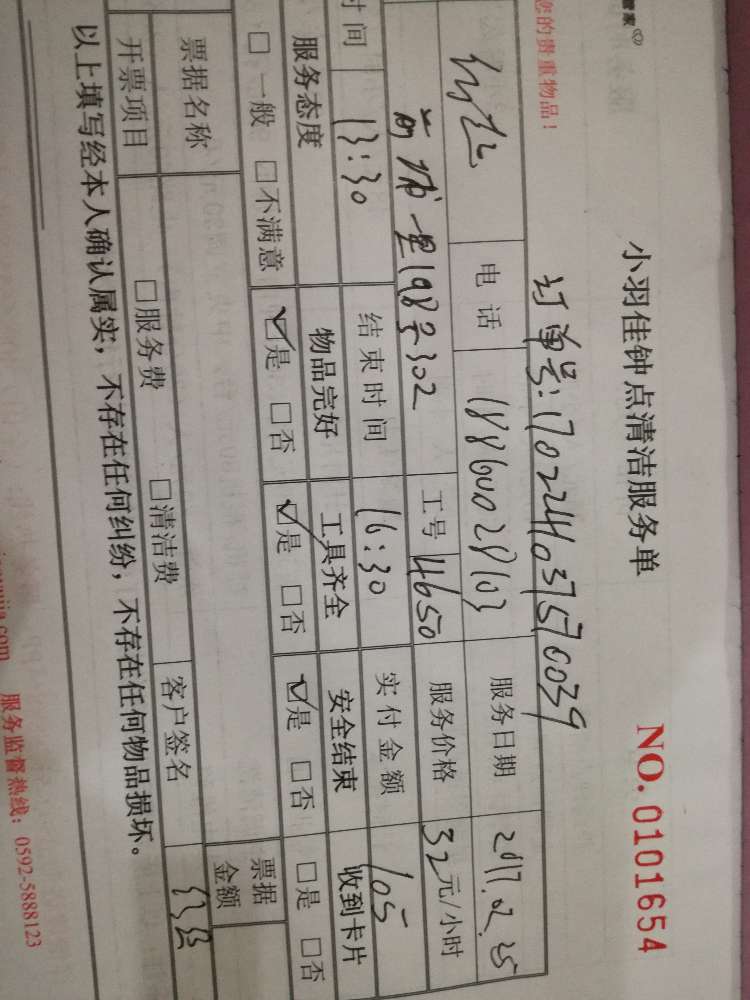 管家
您的贵重物品！
小羽佳钟点清洁服务单
NO. 0101654
订单号：1702241037570039
电话 服务日期 2017.02.25
里198号302 工号 4650 服务价格 32元/小时
时间 13:30 结束时间 16:30 实付金额 105
服务态度 物品完好 工具齐全 安全结束 收到卡片
□一般 □不满意 ☑是 □否 ☑是 □否 ☑是 □否 □是 □否
票据名称 票据金额
开票项目 □服务费 □清洁费 客户签名
以上填写经本人确认属实，不存在任何纠纷，不存在任何物品损坏。
服务监督热线：0592-5888123